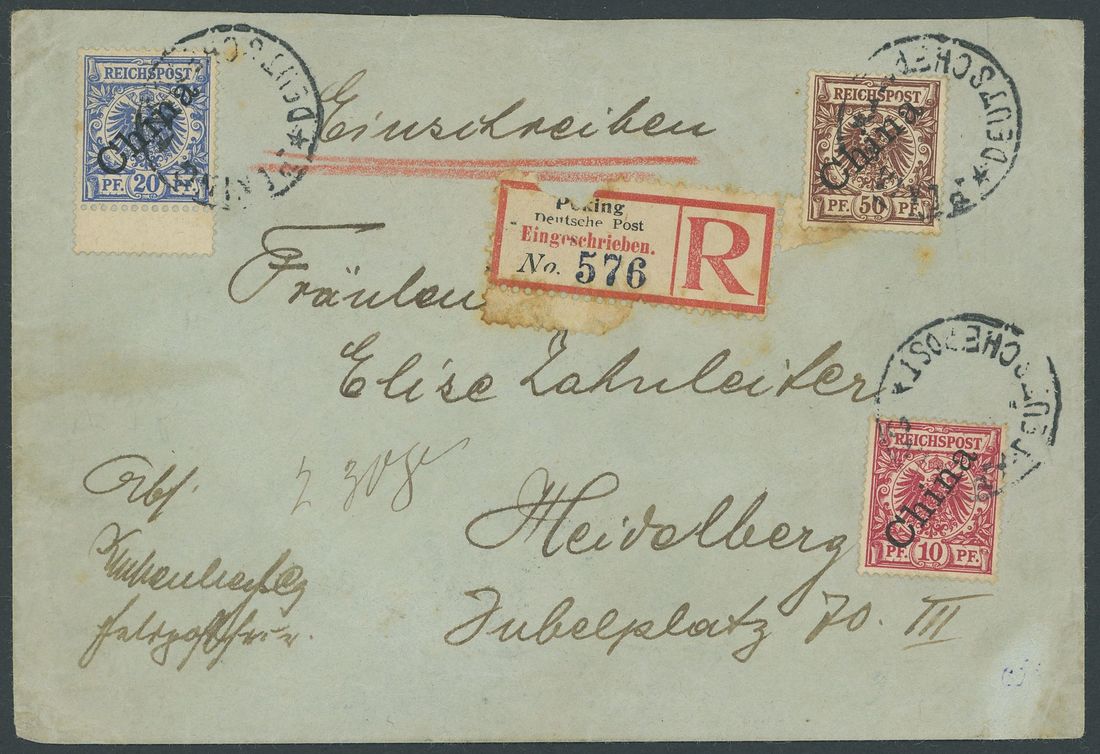 REICHSPOST
China
PF. 20 PF.
DEUTSCHE
Einschreiben
REICHSPOST
China
PF. 50 PF.
DEUTSCHE
Peking
Deutsche Post
Eingeschrieben.
No. 576
R
Fräulein
Elise Zahnleiter
DEUTSCHE POST
REICHSPOST
China
PF. 10 PF.
Heidelberg
Jubelplatz 70. III
Abs.